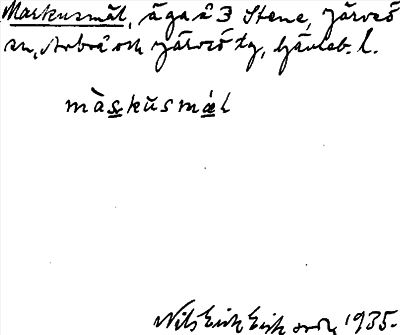 Markusmål, äga å 3 Stene, Järvsö
sn, Arbrå och Järvsö tg, Gävleb. l.
màskŭsmál
Nils Erik Eriksson 1935.